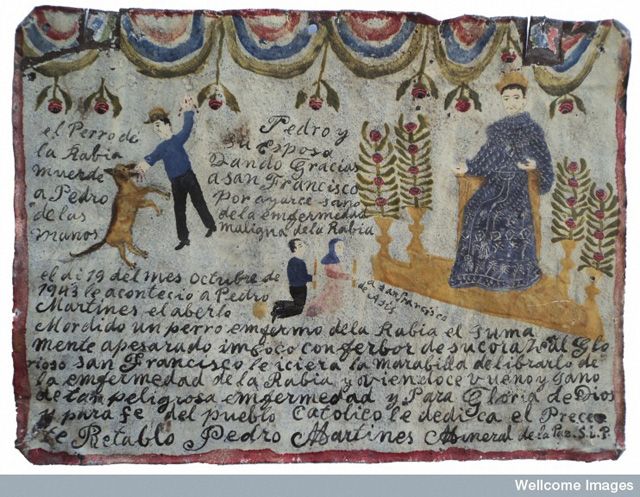 el Perro de
la Rabia
muerde
a Pedro
de las
manos
Pedro y
su esposa
Dando Gracias
a san Francisco
Por ayarce sano
de la emgermedad
maligna de la Rabia
a san Francisco
de Asis
el di 19 del mes octubre de
1943 le acontecio a Pedro
Martines el aberlo
Mordido un perro emgermo de la Rabia el suma
mente apesarado imboco con ferbor de su corazon al Glo
rioso san Francisco le iciera la marabilla de librarlo de
la emgermedad de la Rabia y viendoce vueno y sano
de tan peligrosa emgermedad y Para Gloria de Dios
y para fe del pueblo Catolico le dedica el Prece
te Retablo Pedro Martines Mineral de la Paz. S.L.P.
Wellcome Images